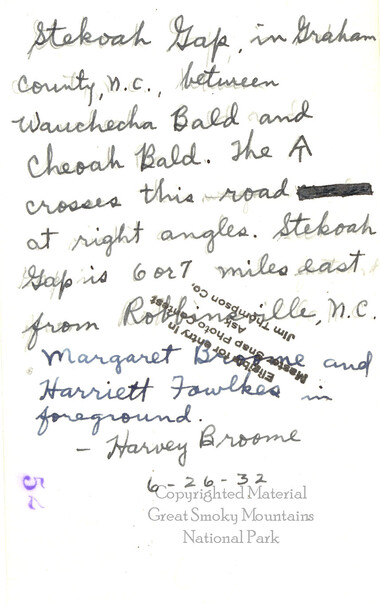 Stekoah Gap, in Graham
County, N.C., between
Wauchecha Bald and
Cheoah Bald. The AT
crosses this road
at right angles. Stekoah
Gap is 6 or 7 miles east
from Robbinsville, N.C.
Margaret Broome and
Harriett Fowlkes in
foreground.
- Harvey Broome
6-26-32
Eligible for entry in
Snap Photo Contest
Ask
Jim Thompson Co.
52
Copyrighted Material
Great Smoky Mountains
National Park